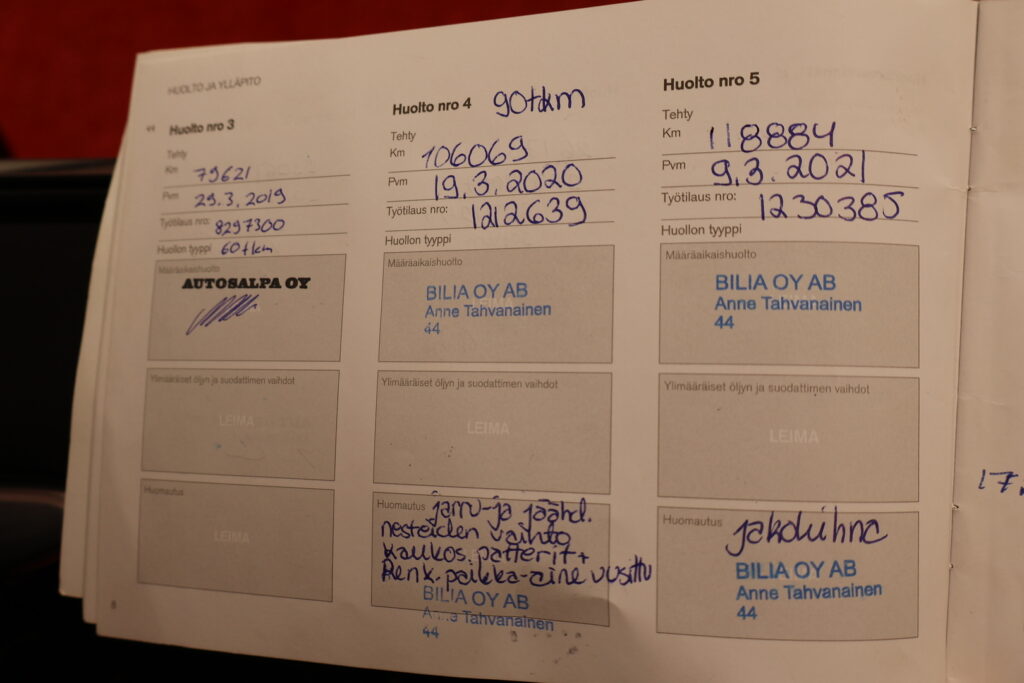 HUOLTO JA YLLÄPITO
Huolto nro 3
Tehty
Km 79621
Pvm 29.3.2019
Työtilaus nro: 8297300
Huollon tyyppi 60tkm
Määräaikaishuolto
AUTOSALPA OY
Ylimääräiset öljyn ja suodattimen vaihdot
LEIMA
Huomautus
LEIMA
8
Huolto nro 4 90tkm
Tehty
Km 106069
Pvm 19.3.2020
Työtilaus nro: 1212639
Huollon tyyppi
Määräaikaishuolto
BILIA OY AB
Anne Tahvanainen
44
Ylimääräiset öljyn ja suodattimen vaihdot
LEIMA
Huomautus jarru-ja jäähd.
nesteiden vaihto
kaukos.patterit+
Renk.paikka-aine uusittu
BILIA OY AB
Anne Tahvanainen
44
Huolto nro 5
Tehty
Km 118884
Pvm 9.3.2021
Työtilaus nro: 1230385
Huollon tyyppi
Määräaikaishuolto
BILIA OY AB
Anne Tahvanainen
44
Ylimääräiset öljyn ja suodattimen vaihdot
LEIMA
Huomautus jakoluhna
BILIA OY AB
Anne Tahvanainen
44
17.